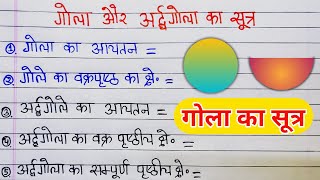 गोला और अर्द्धगोला का सूत्र
① गोला का आयतन =
② गोले का वक्रपृष्ठ का क्षे॰ =
③ अर्द्धगोले का आयतन =
④ अर्द्धगोला का वक्र पृष्ठीय क्षे॰ =
⑤ अर्द्धगोला का सम्पूर्ण पृष्ठीय क्षे॰ =
गोला का सूत्र